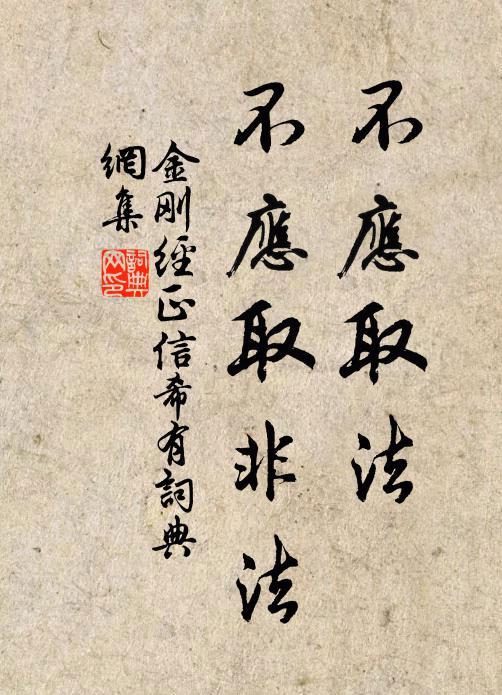 不應取法
不應取非法
金剛經正信希有詞典
網集
詞典
网印